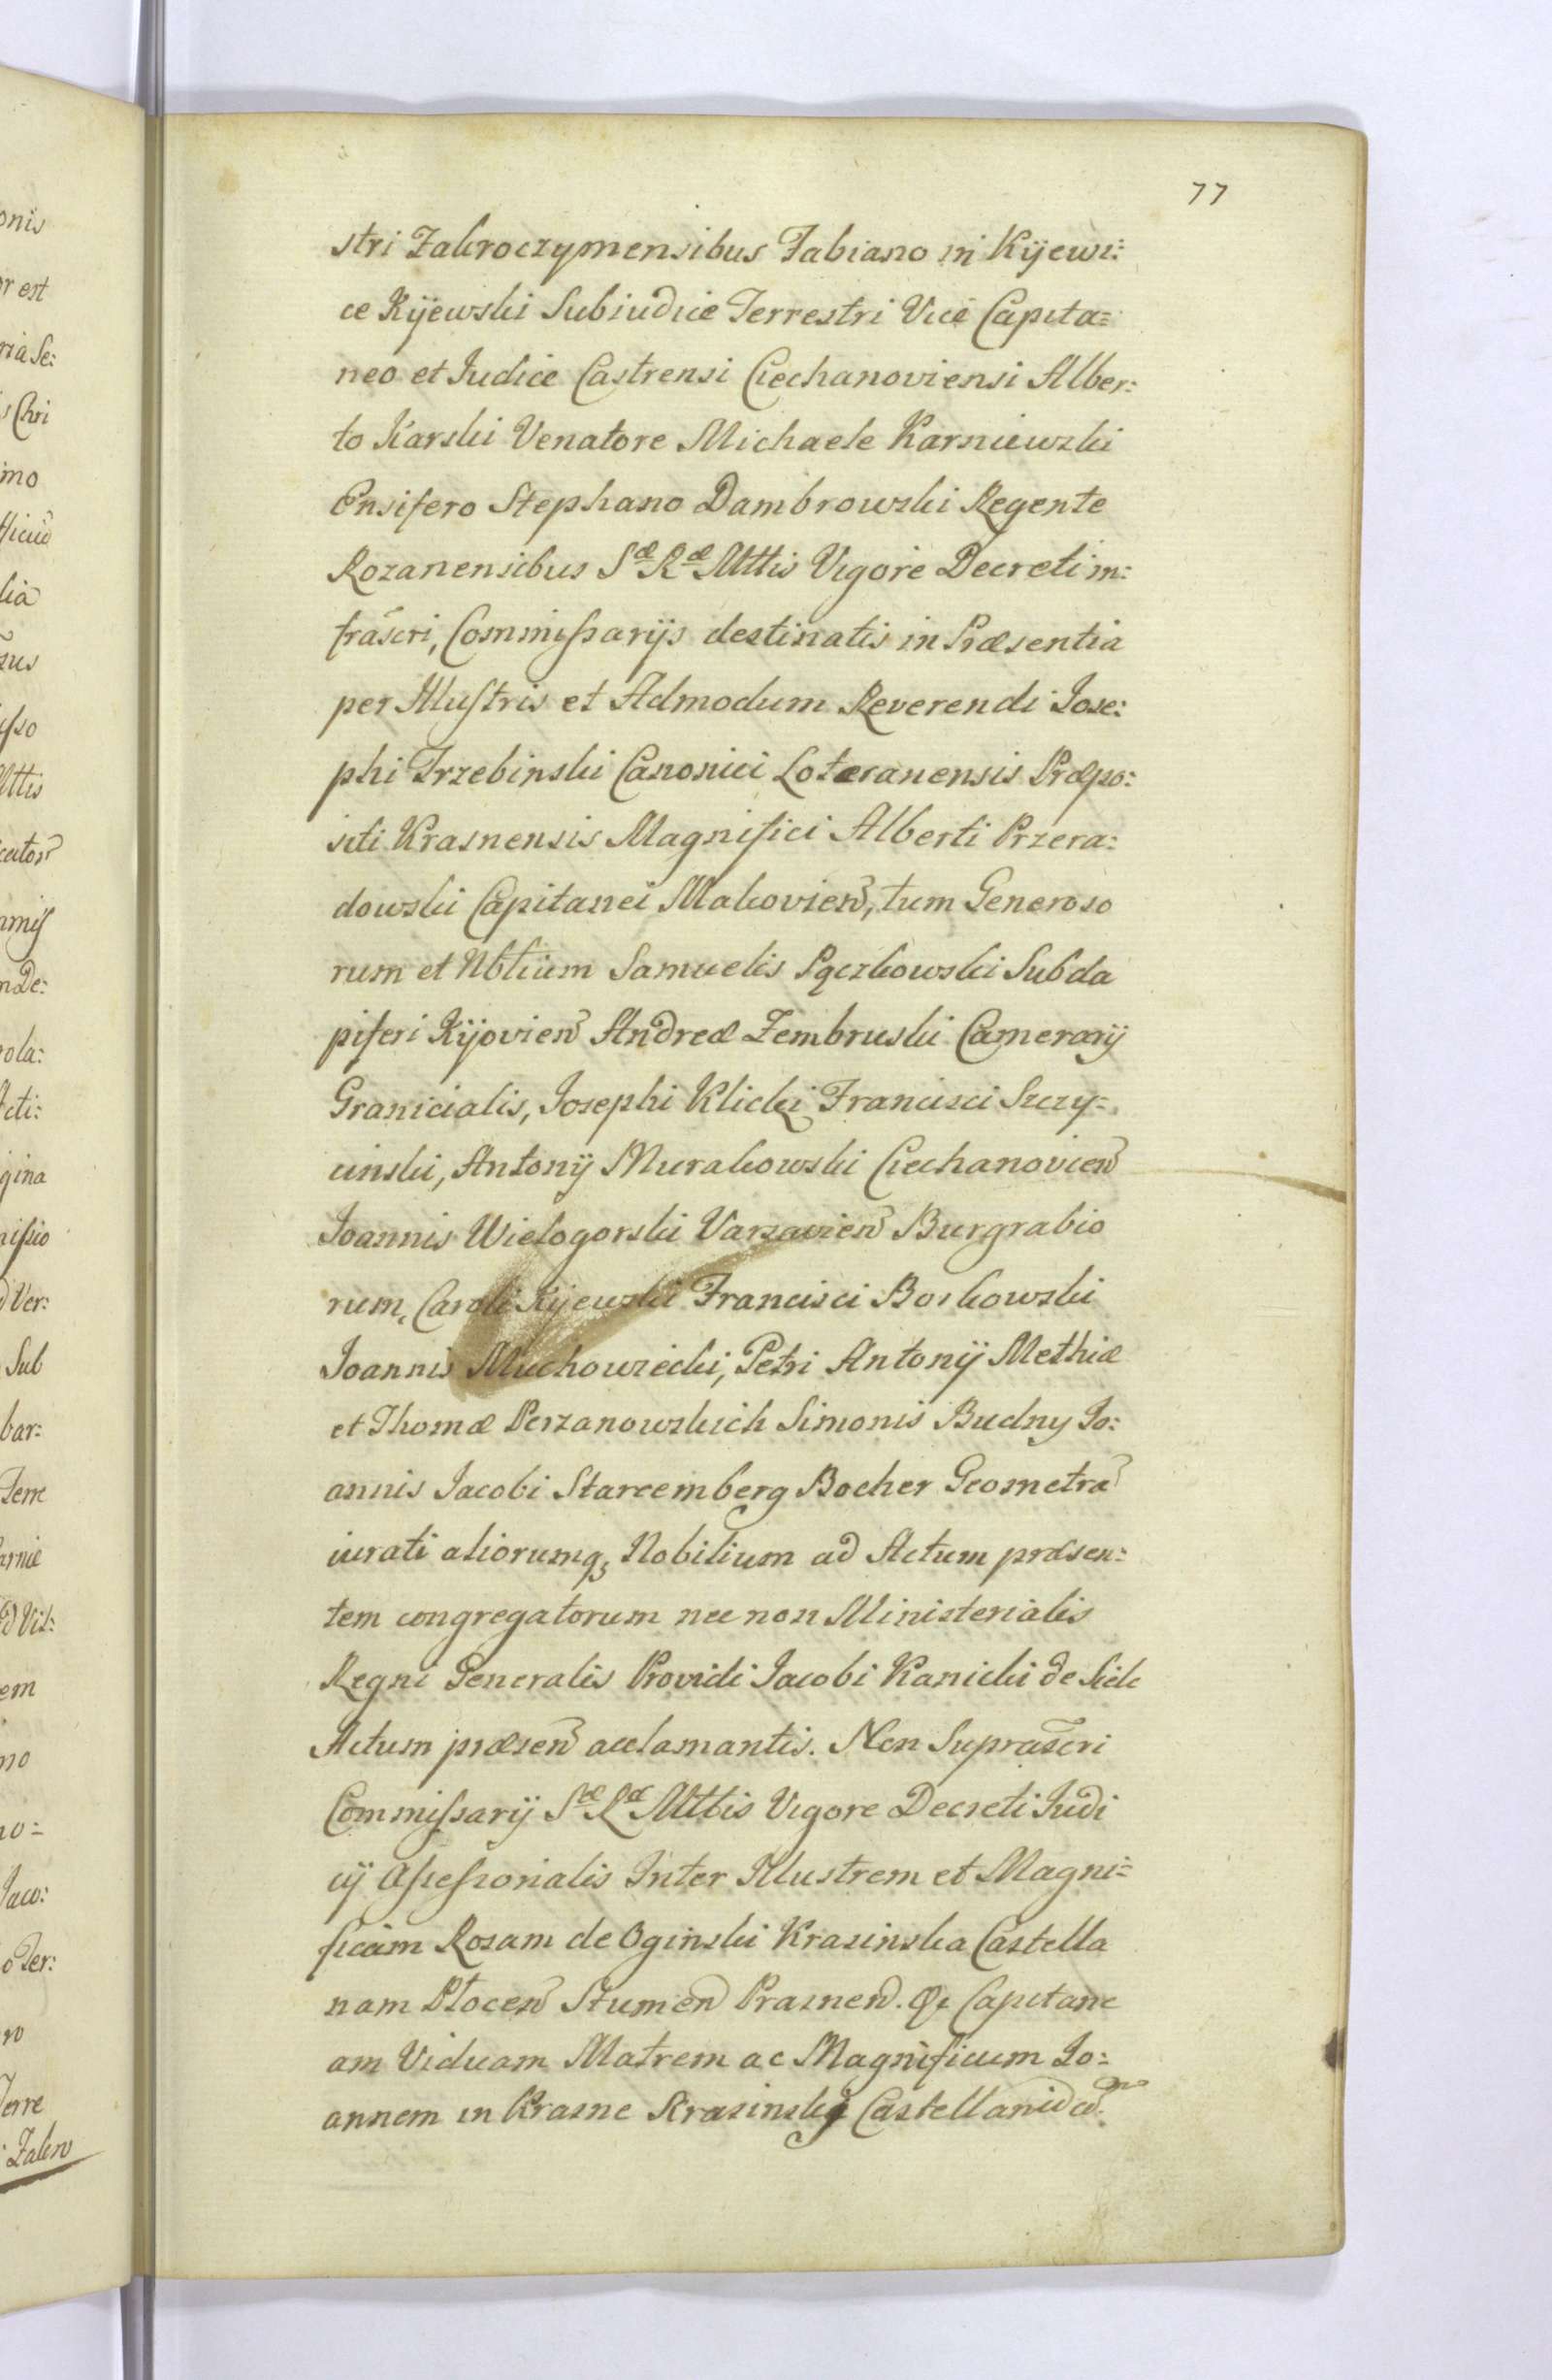 77
stri Zakroczymensibus Fabiano in Kijewi:
ce Kijewski Subiudice Terrestri Vice Capita=
neo et Iudice Castrensi Ciechanoviensi Alber:
to Karski Venatore Michaele Karniewski
Ensifero Stephano Dambrowski Regente
Rozanensibus Sæ Ræ Mttis Vigore Decreti in:
frascri, Commissarijs destinatis in Præsentia
per Illustris et Admodum Reverendi Iose:
phi Trzebinski Canonici Loteranensis Præpo:
siti Krasnensis Magnifici Alberti Przera:
dowski Capitanei Makovien, tum Generoso
rum et Nblium Samuelis Pączkowski Subda
piferi Kijovien Andreæ Zembruski Camerarij
Granicialis, Iosephi Klicki Francisci Szczy=
cinski, Antonij Murakowski Ciechanovien
Ioannis Wielogorski Varsavien Burgrabio
rum, Caroli Kijewski Francisci Borkowski
Ioannis Muchowiecki, Petri Antonij Methiæ
et Thomæ Perzanowskich Simonis Budny Io:
annis Iacobi Starcemberg Bocher Geometræ
iurati aliorumq; Nobilium ad Actum præsen:
tem congregatorum nec non Ministerialis
Regni Generalis Providi Iacobi Kanicki de
Actum præsen acclamantis. Nos Suprascri
Commissarij Sæ Ræ Mttis Vigore Decreti Iudi
cij Assessorialis Inter Illustrem et Magni=
ficam Rosam de Oginski Krasinska Castella
nam Płocen Stumen Prasnen. & Capitane
am Viduam Matrem ac Magnificum Io:
annem in Krasne Krasinski